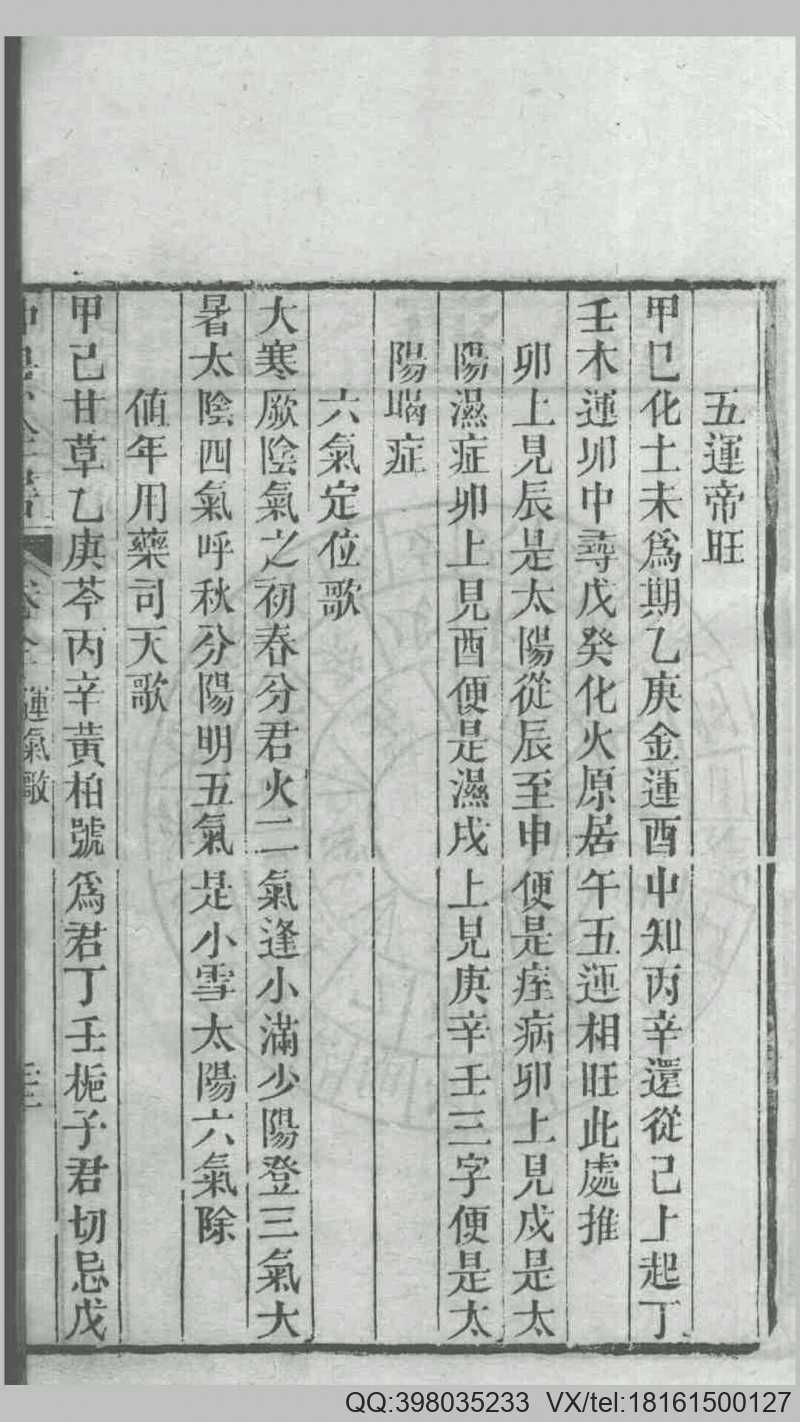 五運帝旺
甲巳化土未爲期乙庚金運酉中知丙辛還從己上起丁
壬木運卯中尋戊癸化火原居午五運相旺此處推
卯上見辰是太陽從辰至申便是痓病卯上見戌是太
陽濕症卯上見酉便是濕戌上見庚辛壬三字便是太
陽暍症
六氣定位歌
大寒厥陰氣之初春分君火二氣逢小滿少陽登三氣大
暑太陰四氣呼秋分陽明五氣是小雪太陽六氣除
値年用藥司天歌
甲己甘草乙庚芩丙辛黃柏號爲君丁壬梔子君切忌戊
運氣歌
QQ:398035233 VX/tel:18161500127